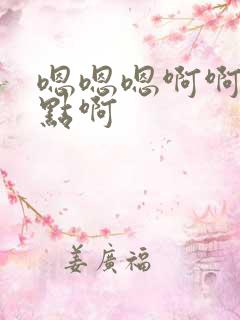 嗯嗯嗯啊啊
點啊
姜廣福